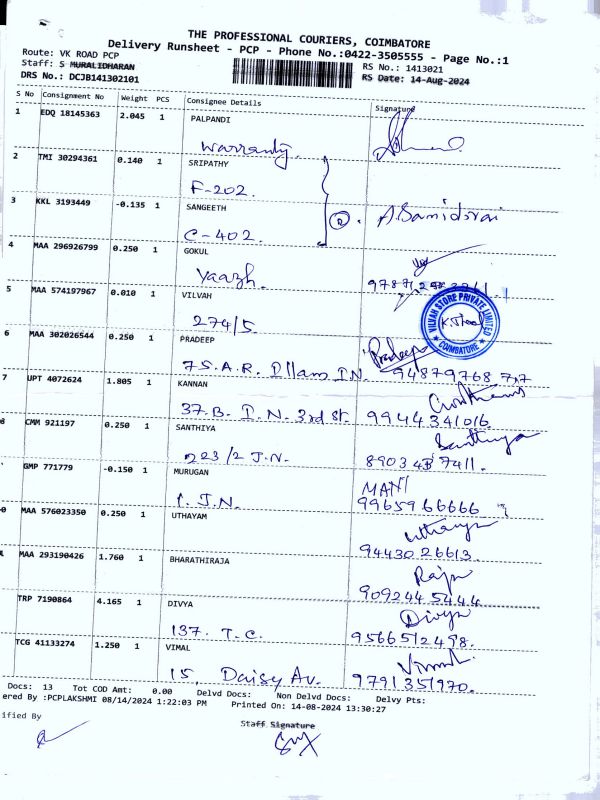 THE PROFESSIONAL COURIERS, COIMBATORE
Delivery Runsheet - PCP - Phone No.:0422-3505555 - Page No.:1
Route: VK ROAD PCP
RS No.: 1413021
Staff: S MURALIDHARAN
RS Date: 14-Aug-2024
DRS No.: DCJB141302101
S No Consignment No Weight PCS Consignee Details Signature
1 EDQ 18145363 2.045 1 PALPANDI
Warranty.
2 TMI 30294361 0.140 1 SRIPATHY
F-202.
3 KKL 3193449 -0.135 1 SANGEETH
A. Samidorai
C-402.
4 MAA 296926799 0.250 1 GOKUL
Yaazh.
5 MAA 574197967 0.010 1 VILVAH
VILVAH STORE PRIVATE LIMITED
COIMBATORE
274/5.
6 MAA 302026544 0.250 1 PRADEEP
Pradeep
75.A.R. Illam I.N. 94879768 77
7 UPT 4072624 1.805 1 KANNAN
37.B. I.N. 3rd st. 9944341016.
8 CMM 921197 0.250 1 SANTHIYA
Santhiya
223/2 J.N. 8903437411.
GMP 771779 -0.150 1 MURUGAN
MANI
1. J.N. 9965966666
0 MAA 576023350 0.250 1 UTHAYAM
Uthaya
9443026613.
MAA 293190426 1.760 1 BHARATHIRAJA
Raja
9092445444
TRP 7190864 4.165 1 DIVYA
Divya
137. T.C. 9566512498.
TCG 41133274 1.250 1 VIMAL
Vimal
15, Daisy Av. 9791351970.
Docs: 13 Tot COD Amt: 0.00 Delvd Docs: Non Delvd Docs: Delvy Pts:
ered By :PCPLAKSHMI 08/14/2024 1:22:03 PM Printed On: 14-08-2024 13:30:27
ified By
Staff Signature